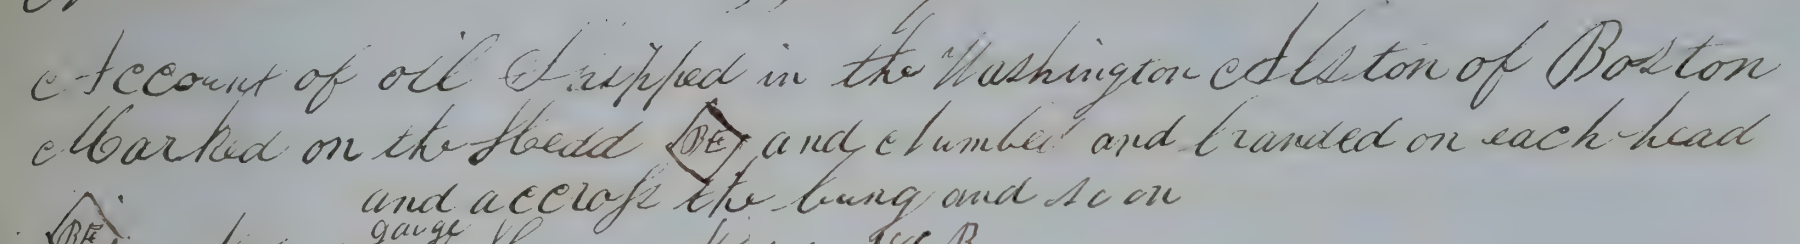 Account of oil Shipped in the Washington Alston of Boston
Marked on the Hedd BE and Number and branded on each head
and accross the bung and so on
BE gauge